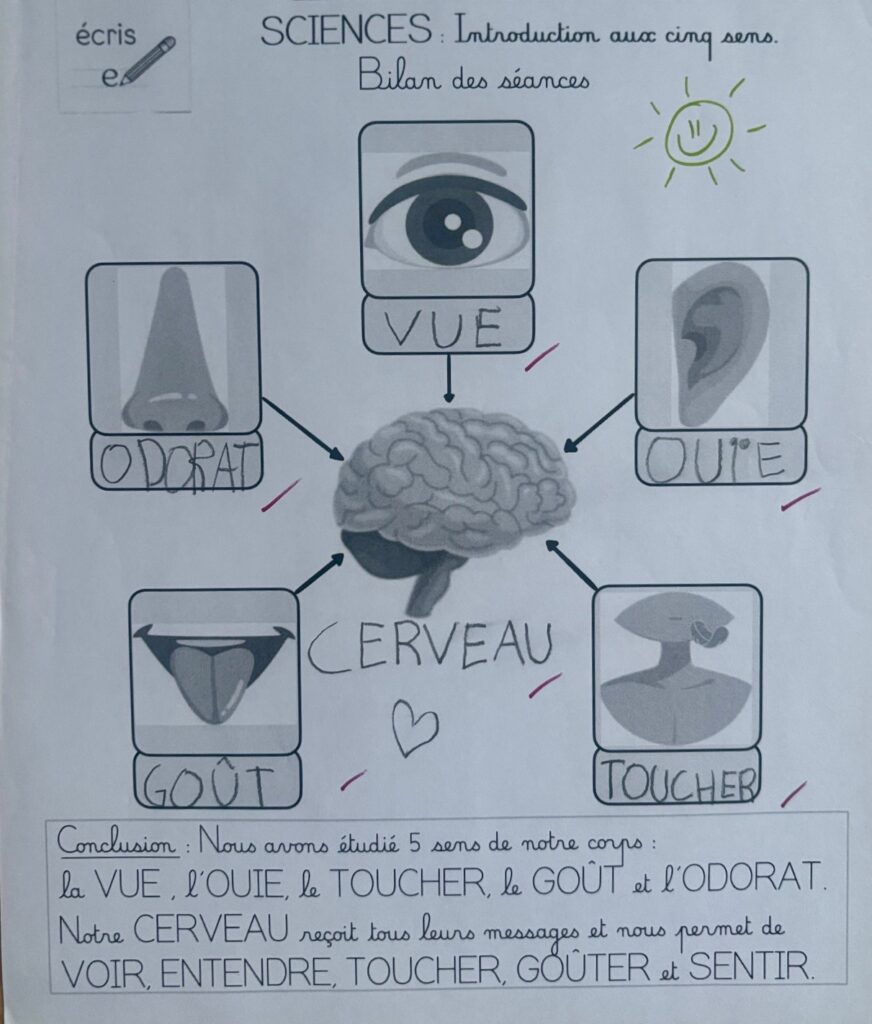 écris
e
SCIENCES : Introduction aux cinq sens.
Bilan des séances
VUE
ODORAT
OUïE
CERVEAU
GOÛT
TOUCHER
Conclusion : Nous avons étudié 5 sens de notre corps :
la VUE, l'OUIE, le TOUCHER, le GOÛT et l'ODORAT.
Notre CERVEAU reçoit tous leurs messages et nous permet de
VOIR, ENTENDRE, TOUCHER, GOÛTER et SENTIR.